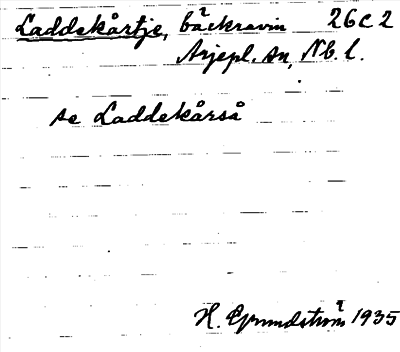 Laddekårtje, bäckravin 26C2
Arjepl. sn, Nb. l.
se Laddekårså
H. Grundström 1935